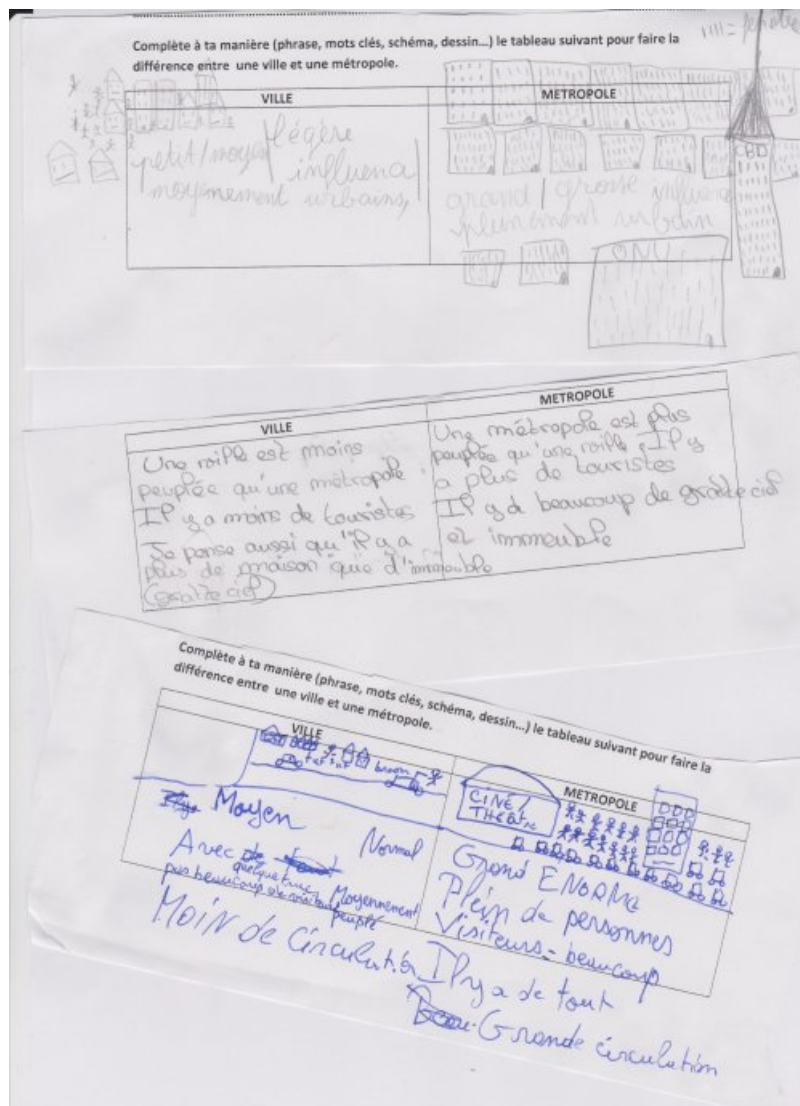 Complète à ta manière (phrase, mots clés, schéma, dessin...) le tableau suivant pour faire la
différence entre une ville et une métropole.
IIII = fenêtre
VILLE
METROPOLE
petit/moyen / légère
influence /
moyennement urbains,
CBD
grand / grosse influence
pleinement urbain
ONU
VILLE
METROPOLE
Une ville est moins
peuplée qu'une métropole.
Il y a moins de touristes
Je pense aussi qu'il y a
plus de maison que d'immeuble
(gratte ciel)
Une métropole est plus
peuplée qu'une ville. Il y
a plus de touristes
Il y a beaucoup de gratte ciel
et immeuble
Complète à ta manière (phrase, mots clés, schéma, dessin...) le tableau suivant pour faire la
différence entre une ville et une métropole.
VILLE
METROPOLE
Moyen
Normal
Avec
quelque
pas beaucoup de
Moyennement
peuplé
Moin de circulation
CINÉ/
THEÂTRE
Grand ENORME
Plein de personnes
Visiteurs = beaucoup
Il y a de tout
Grande circulation